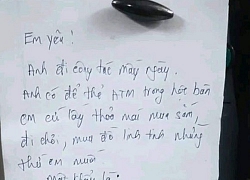 Em yêu !
Anh đi công tác mấy ngày.
Anh có để thẻ ATM trong hộc bàn
em cứ lấy thoả mái mua sắm,
đi chơi, mua đồ linh tinh những
thứ em muốn
Mật khẩu là: